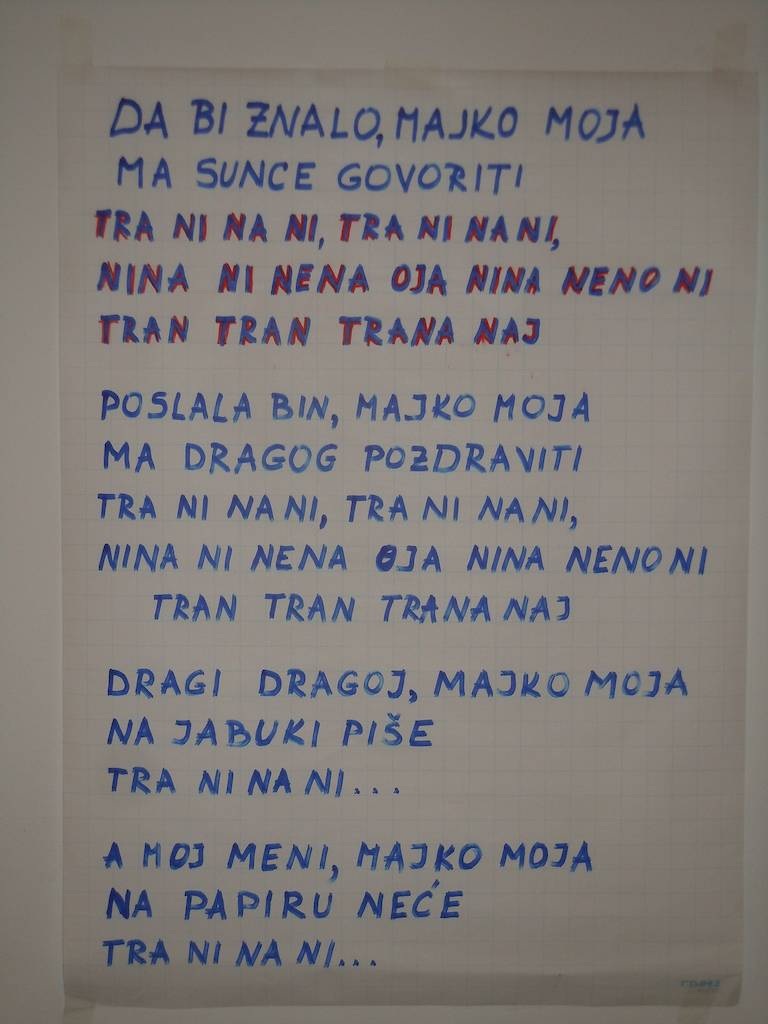 DA BI ZNALO, MAJKO MOJA
MA SUNCE GOVORITI
TRA NI NA NI, TRA NI NA NI,
NINA NI NENA OJA NINA NENO NI
TRAN TRAN TRANA NAJ
POSLALA BIN, MAJKO MOJA
MA DRAGOG POZDRAVITI
TRA NI NA NI, TRA NI NA NI,
NINA NI NENA OJA NINA NENO NI
TRAN TRAN TRANA NAJ
DRAGI DRAGOJ, MAJKO MOJA
NA JABUKI PIŠE
TRA NI NA NI...
A MOJ MENI, MAJKO MOJA
NA PAPIRU NEĆE
TRA NI NA NI...